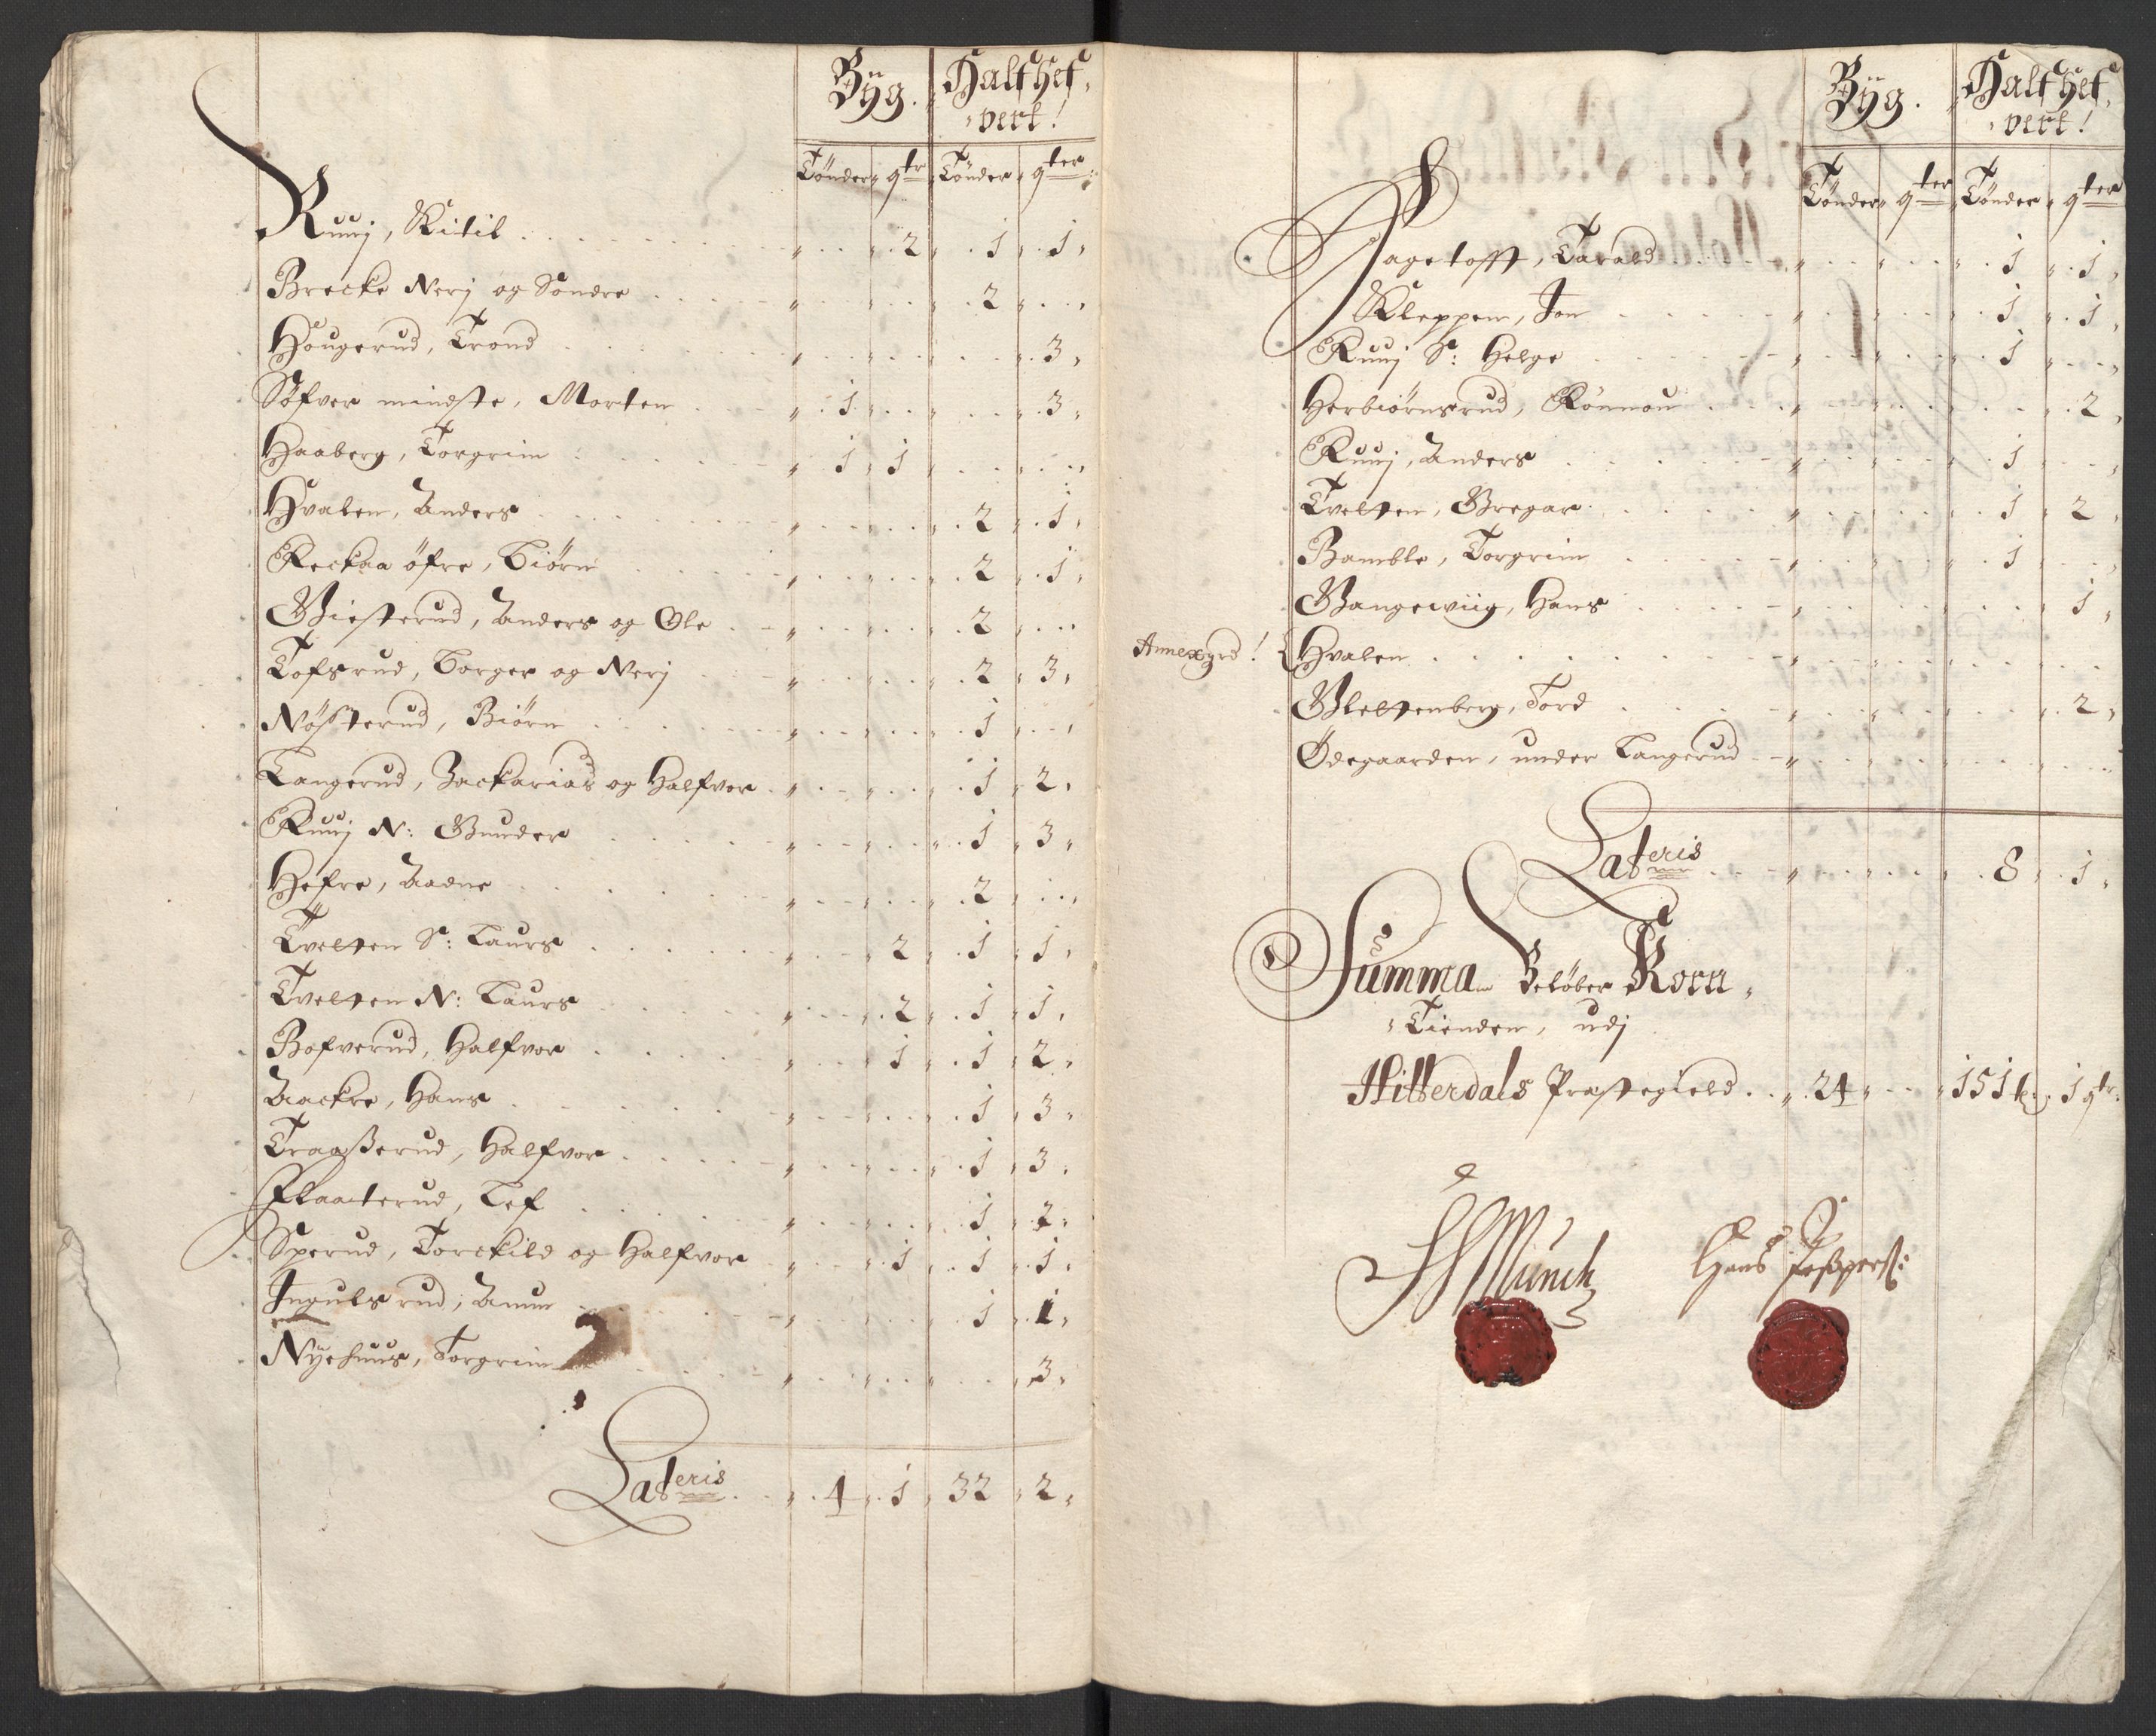 Byg. Halfhef-
vert!
Tønder qtr Tønder qter
Ruuj, Kitil 2 1 1
Brecke Nerj og Søndre 2
Hougerud, Trond 3
Søfver mindste, Morten 1 3
Haaberg, Torgrim 1 1
Hvalen, Anders 2 1
Reckaa öfre, Biørn 2 1
Giesterud, Anders og Ole 2
Tofsrud, Borger og Nerj 2 3
Nøhsterud, Biörn 1
Langerud, Zackarias og Halfvor 1 2
Ruuj N: Gunder 1 3
Hefre, Aadne 2
Tvelten S: Laurs 2 1 1
Tvelten N: Laurs 2 1 1
Bofverud, Halfvor 1 1 2
Aackre, Hans 1 3
Traaßerud, Halfvor 1 3
Flaaterud, Lef 1 2
Sperud, Torckild og Halfvor 1 1 1
Ingulsrud, Anun 1 1
Nyehuus, Torgrim 3
Lateris 4 1 32 2
Byg. Halfhef-
vert!
Tønder qter Tønder qter
Hagetofft, Tarald 1 1
Kleppen, Jon 1 1
Ruuj S: Helge 1
Herbiørnsrud, Rönnou 2
Ruuj, Anders 1
Tvelten, Gregar 1 2
Bamble, Torgrim 1
Vangewiig, Hans 1
Annexgrd! { Hvalen
Gleltenberg, Tord 2
Ödegaarden, under Langerud
Lateris 8 1
Summa Beløber Korn-
Tienden, udj
Hitterdals Præstegield 24 151 t. 1 qtr.
Munch Hans Jeßpers: